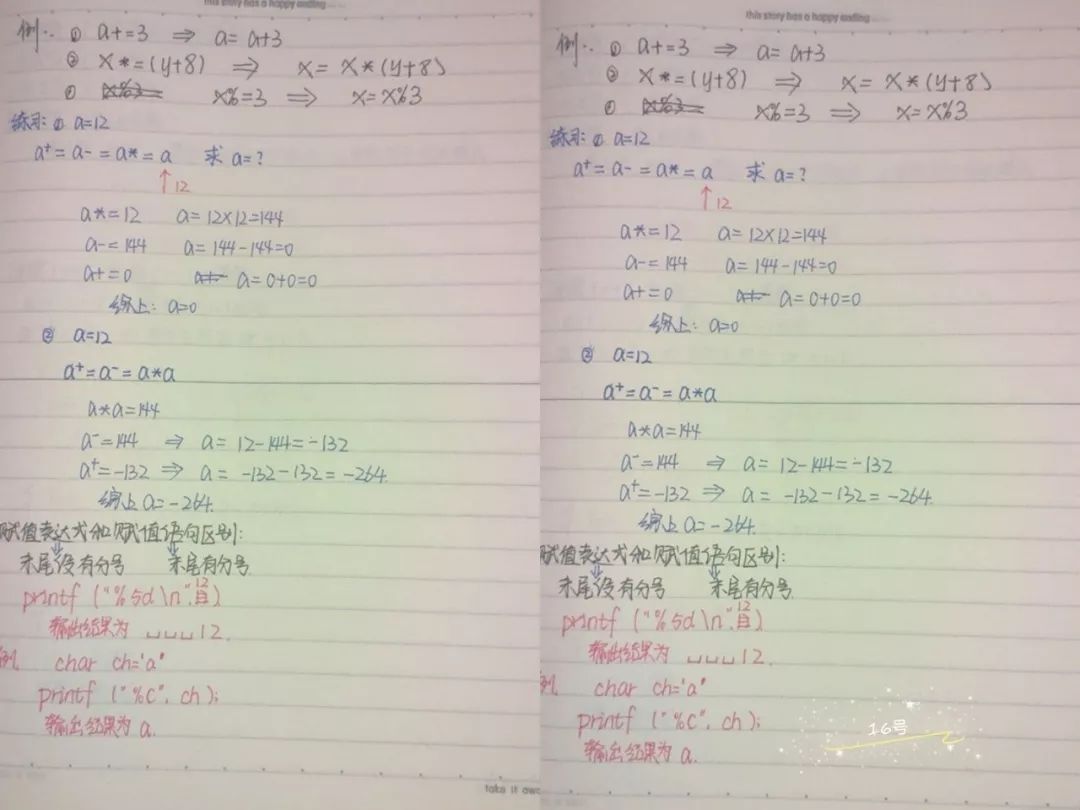 this story has a happy ending
例:. ① a+=3 ⇒ a=a+3
② x*=(y+8) ⇒ x=x*(y+8)
x%=3 ⇒ x=x%3
练习: ① a=12
a+=a-=a*=a 求a=?
↑12
a*=12 a=12×12=144
a-=144 a=144-144=0
a+=0 a=0+0=0
综上: a=0
② a=12
a+=a-=a*a
a*a=144
a-=144 ⇒ a=12-144=-132
a+=-132 ⇒ a=-132-132=-264.
综上a=-264.
赋值表达式和赋值语句区别:
末尾没有分号 末尾有分号
12
printf ("%5d\n",)
输出结果为 ␣␣␣12.
例 char ch='a"
printf ("%c", ch);
输出结果为a.
take it awa
this story has a happy ending
例:. ① a+=3 ⇒ a=a+3
② x*=(y+8) ⇒ x=x*(y+8)
x%=3 ⇒ x=x%3
练习: ① a=12
a+=a-=a*=a 求a=?
↑12
a*=12 a=12×12=144
a-=144 a=144-144=0
a+=0 a=0+0=0
综上: a=0
② a=12
a+=a-=a*a
a*a=144
a-=144 ⇒ a=12-144=-132
a+=-132 ⇒ a=-132-132=-264.
综上a=-264.
赋值表达式和赋值语句区别:
末尾没有分号 末尾有分号
12
printf ("%5d\n",)
输出结果为 ␣␣␣12.
例 char ch='a"
printf ("%c", ch);
输出结果为a.
16号